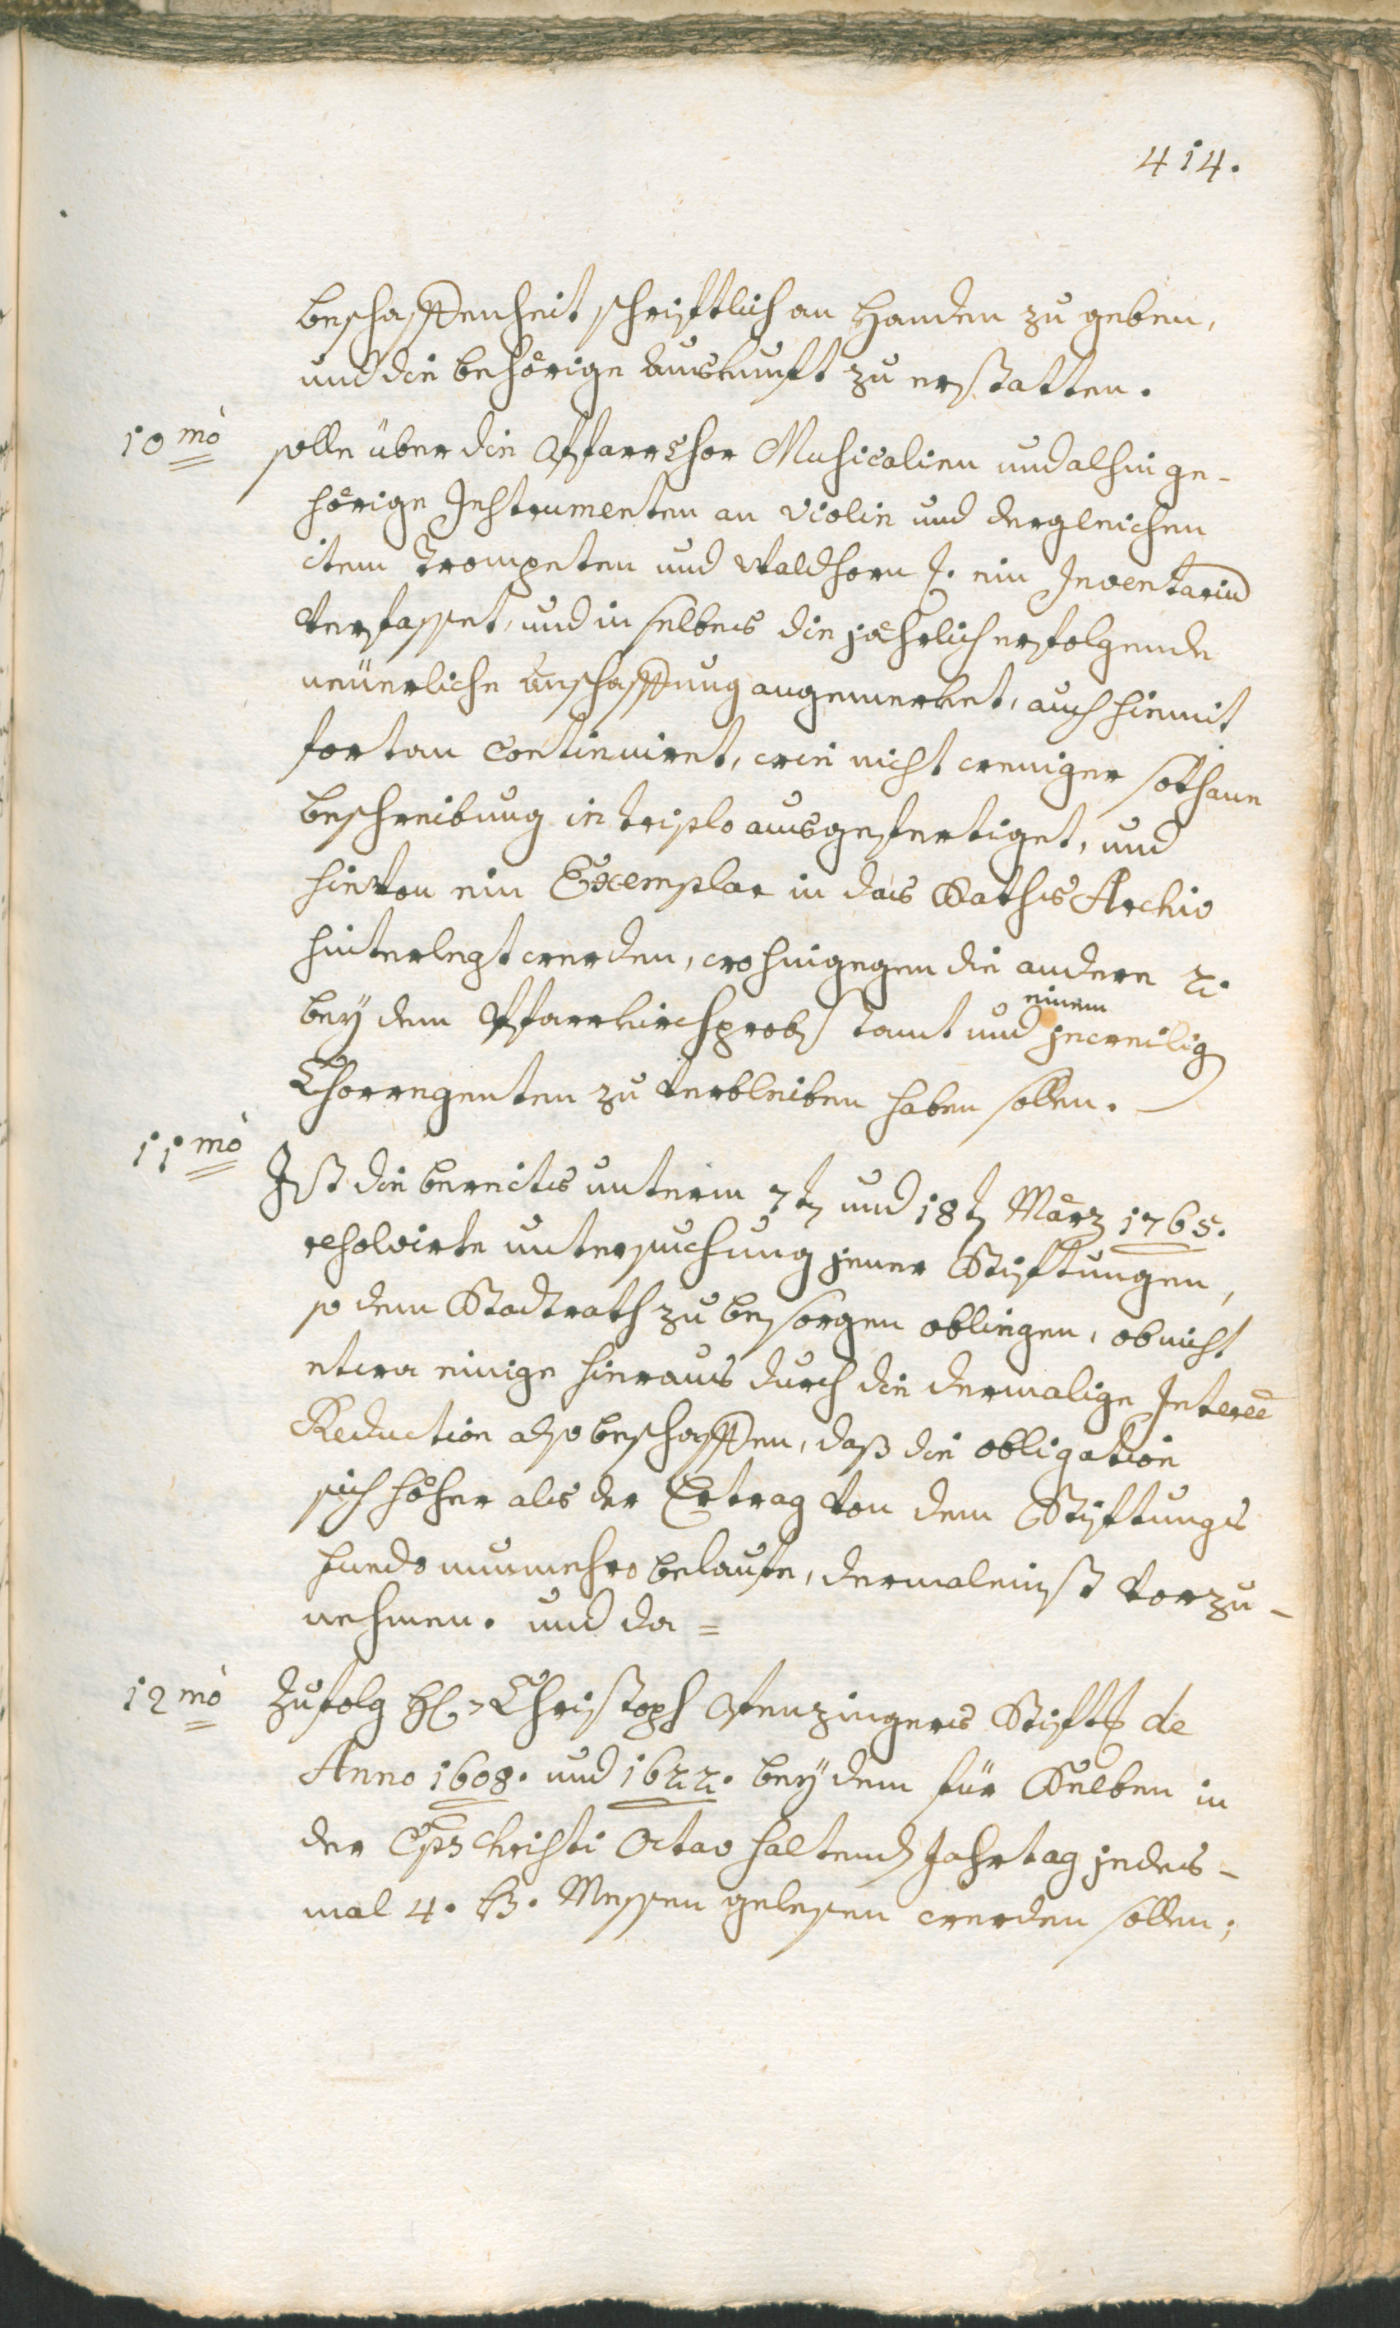 414.
beschaffenheit schriftlich an Handen zu geben,
und die behörige auskunft zu erstatten.
10mò solle über die Pfarr Chor Musicalien und alhin ge-
hörige Instrumenten an Violin und dergleichen
item Trompeten und Waldhorn ꝛc. ein Inventariu
verfasset, und in selbes die jährlich erfolgende
neüerliche anschaffung angemerket, auch hiemit
fortan continuiret, wie nicht weniger sothane
beschreibung in triplo ausgefertiget, und
hievon ein Exemplar in das Raths Archiv
hinterlegt werden, wohingegen die andere 2.
bey dem Pfarrkirchprobstamt und einem jeweilig
Chorregenten zu verbleiben haben sollen.
11mò Ist die bereits unterm 7t und 18t März 1765.
resolvirte untersuchung jener Stiftungen,
so dem Stadtrath zu besorgen obliegen, ob nicht
etwa einige hieraus durch die dermalige Interee
Reduction also beschaffen, daß die obligation
sich höher als der Ertrag von dem Stiftungs
funds nunmehro belaufe, dermaleinst vorzu-
nehmen. und da =
12mò Zufolg H: Christoph Penzingers Stiftb de
Anno 1608. und 1622. bey dem für Selben in
der Cps Christi Octav haltend Jahrtag jedes-
mal 4. h. Messen gelesen werden sollen;